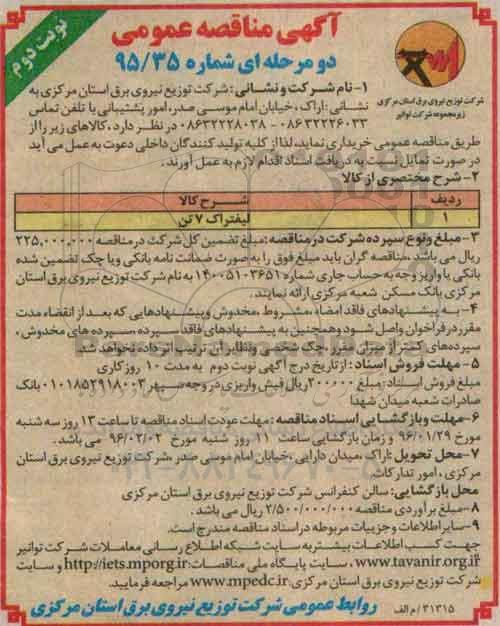 نوبت دوم
آگهی مناقصه عمومی
دو مرحله ای شماره ۹۵/۳۵
شرکت توزیع نیروی برق استان مرکزی
زیرمجموعه شرکت توانیر
۱- نام شرکت و نشانی : شرکت توزیع نیروی برق استان مرکزی به
نشانی : اراک ، خیابان امام موسی صدر، امور پشتیبانی با تلفن تماس
۳۲۲۲۶۰۳۳-۰۸۶ - ۰۸۶۳۲۲۲۸۰۳۸ در نظر دارد ، کالاهای زیر را از
طریق مناقصه عمومی خریداری نماید، لذا از کلیه تولید کنندگان داخلی دعوت به عمل می آید
در صورت تمایل نسبت به دریافت اسناد اقدام لازم به عمل آورند .
۲- شرح مختصری از کالا
ردیف شرح کالا
۱ لیفتراک ۷ تن
۳- مبلغ و نوع سپرده شرکت در مناقصه : مبلغ تضمین کل شرکت در مناقصه ۲۲۵,۰۰۰,۰۰۰
ریال می باشد . مناقصه گران باید مبلغ فوق را به صورت ضمانت نامه بانکی و یا چک تضمین شده
بانکی یا واریز وجه به حساب جاری شماره ۱۴۰۰۵۱۰۳۶۵۱ به نام شرکت توزیع نیروی برق استان
مرکزی بانک مسکن شعبه مرکزی ارائه نمایند .
۴- به پیشنهادهای فاقد امضاء ، مشروط ، مخدوش و پیشنهادهایی که بعد از انقضاء مدت
مقرر در فراخوان واصل شود و همچنین به پیشنهادهای فاقد سپرده ، سپرده های مخدوش ،
سپرده‌های کمتر از میزان مقرر ، چک شخصی و نظایر آن ترتیب اثر داده نخواهد شد .
۵- مهلت فروش اسناد : از تاریخ درج آگهی نوبت دوم به مدت ۱۰ روز کاری
مبلغ فروش اسناد : مبلغ ۲۰۰۰۰۰ ریال فیش واریزی در وجه سپهر ۰۱۰۱۸۵۲۹۱۸۰۰۳ بانک
صادرات شعبه میدان شهدا
۶- مهلت و بازگشایی اسناد مناقصه : مهلت عودت اسناد مناقصه تا ساعت ۱۳ روز سه شنبه
مورخ ۹۶/۰۱/۲۹ و زمان بازگشایی ساعت ۱۱ روز شنبه مورخ ۹۶/۰۲/۰۲ می باشد .
۷- محل تحویل : اراک ، میدان دارایی ، خیابان امام موسی صدر ، شرکت توزیع نیروی برق استان
مرکزی ، امور تدارکات
محل بازگشایی : سالن کنفرانس شرکت توزیع نیروی برق استان مرکزی
۸- مبلغ برآوردی مناقصه ۲/۵۰۰/۰۰۰/۰۰۰ ریال می باشد .
۹- سایر اطلاعات و جزییات مربوطه در اسناد مناقصه مندرج است .
جهت کسب اطلاعات بیشتر به سایت شبکه اطلاع رسانی معاملات شرکت توانیر
www.tavanir.org.ir ، سایت پایگاه ملی مناقصات: http://iets.mporg.ir و سایت
شرکت توزیع نیروی برق استان مرکزی: www.mpedc.ir مراجعه فرمایید.
روابط عمومی شرکت توزیع نیروی برق استان مرکزی
۳۱۳۱۵ / م الف